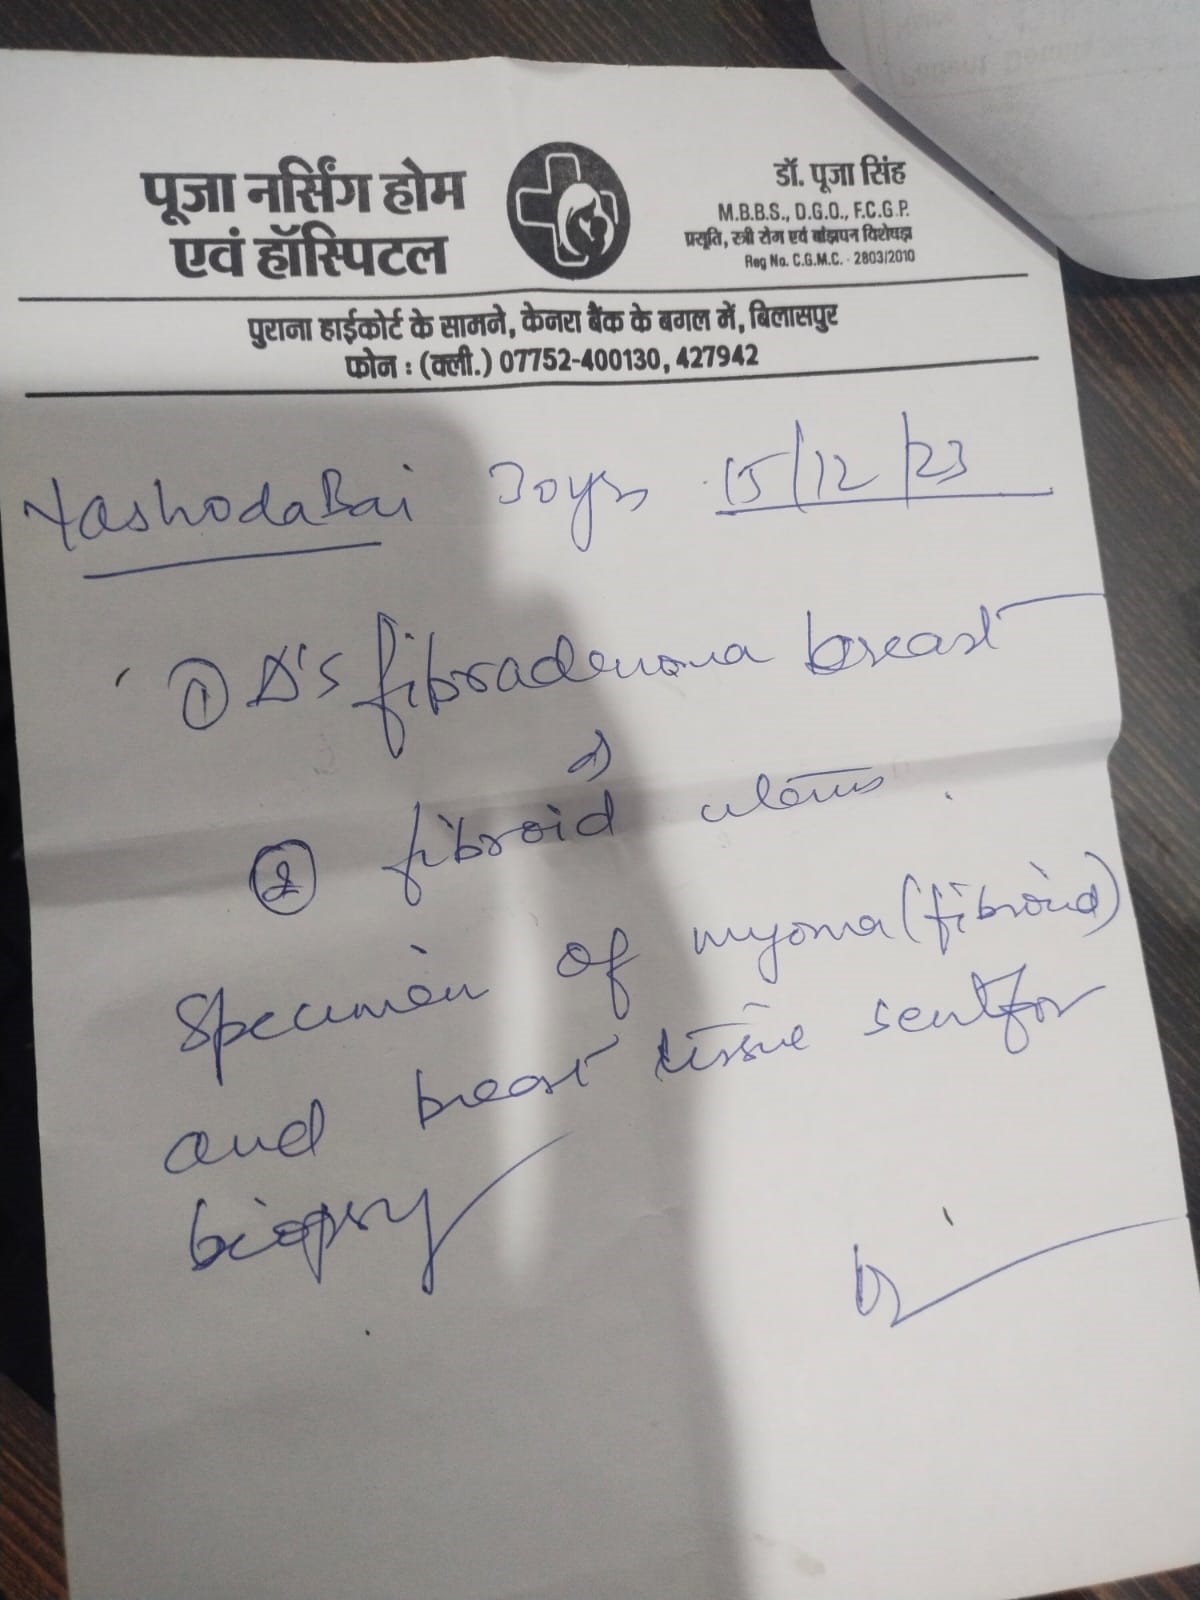 पूजा नर्सिंग होम
एवं हॉस्पिटल
डॉ. पूजा सिंह
M.B.B.S., D.G.O., F.C.G.P.
प्रसूति, स्त्री रोग एवं बांझपन विशेषज्ञ
Reg No. C.G.M.C. - 2803/2010
पुराना हाईकोर्ट के सामने, केनरा बैंक के बगल में, बिलासपुर
फोन : (क्ली.) 07752-400130, 427942
Yashoda Bai 30yrs 15/12/23
① Δ'S fibradenoma breast
② fibroid uterus
Specimen of myoma (fibroid)
and breast tissue sent for
biopsy